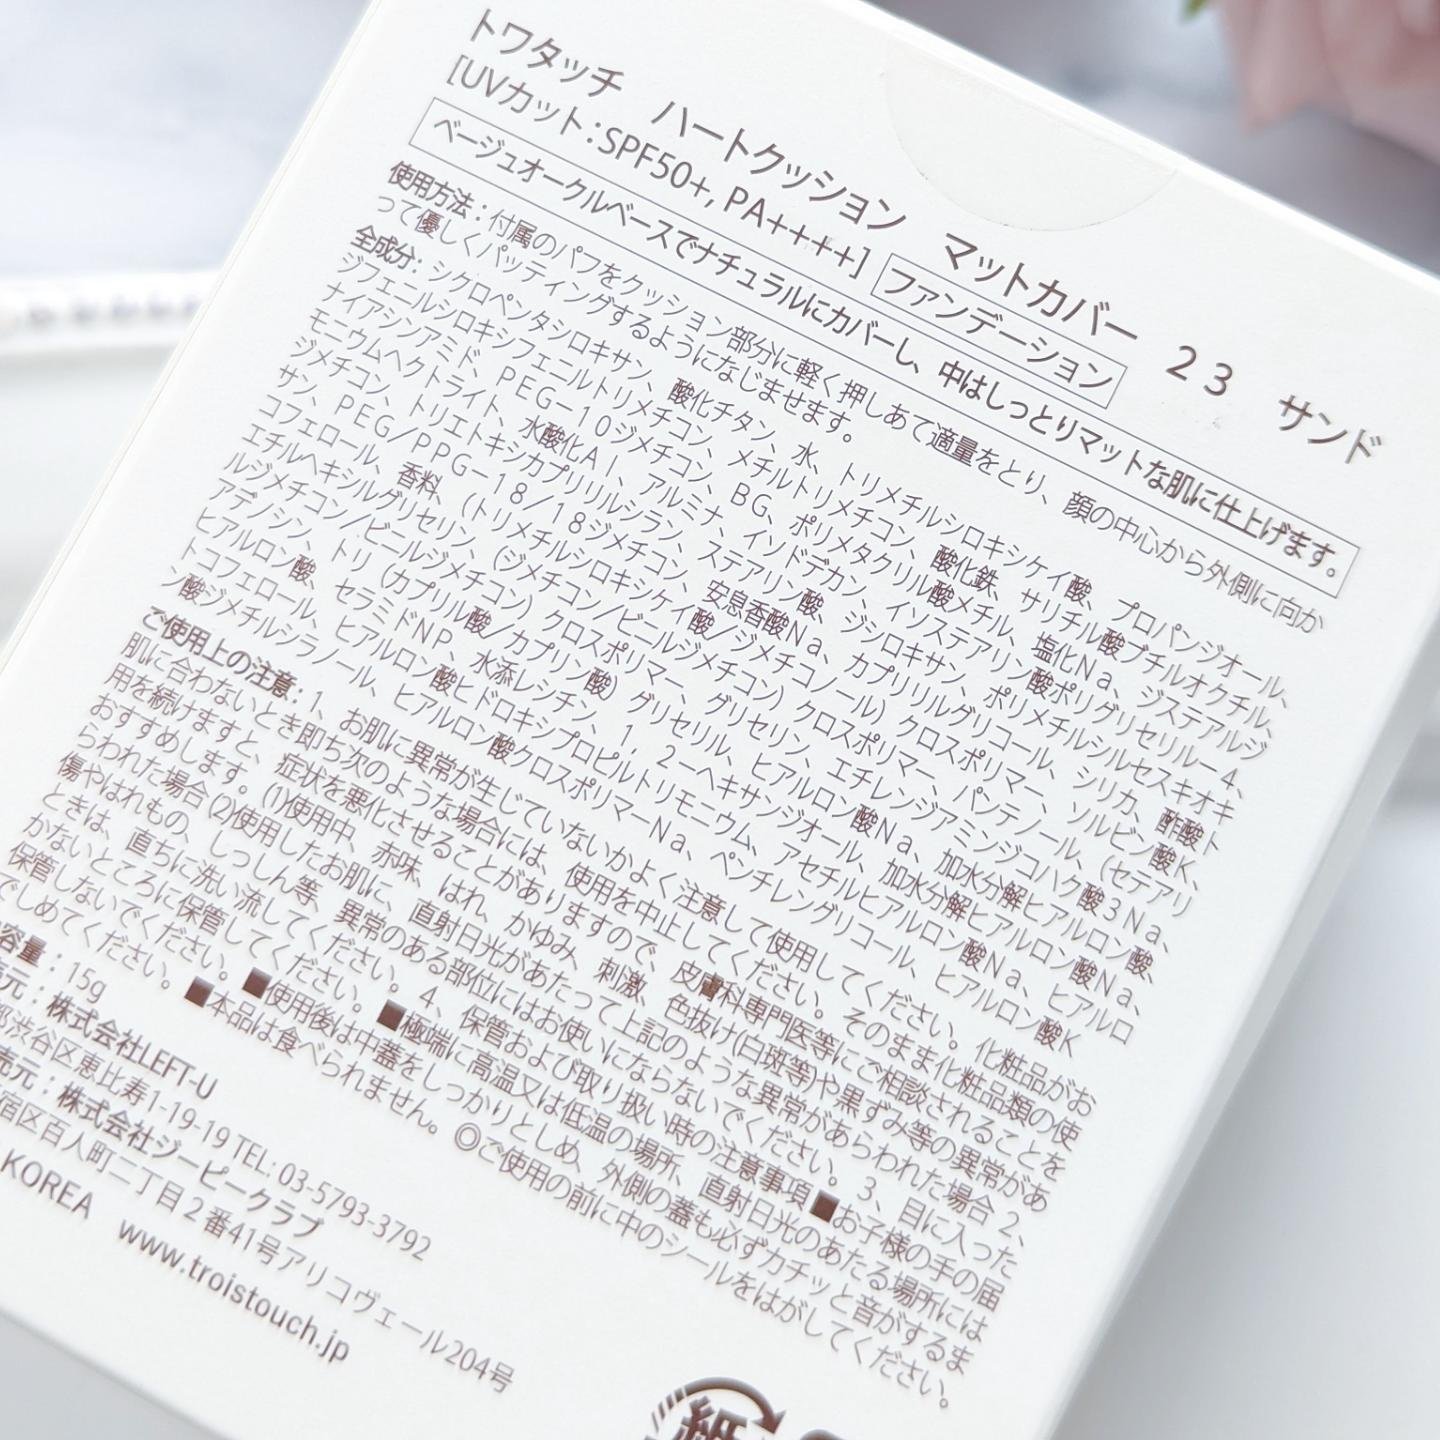 トワタッチ　ハートクッション　マットカバー　２３　サンド
[UVカット：SPF50+, PA++++] ファンデーション
ベージュオークルベースでナチュラルにカバーし、中はしっとりマットな肌に仕上げます。
使用方法：付属のパフをクッション部分に軽く押しあて適量をとり、顔の中心から外側に向か
って優しくパッティングするようになじませます。
全成分：シクロペンタシロキサン、酸化チタン、水、トリメチルシロキシケイ酸、プロパンジオール、
ジフェニルシロキシフェニルトリメチコン、メチルトリメチコン、酸化鉄、サリチル酸ブチルオクチル、
ナイアシンアミド、ＰＥＧ－１０ジメチコン、ＢＧ、ポリメタクリル酸メチル、塩化Ｎａ、ジステアルジ
モニウムヘクトライト、水酸化Ａｌ、アルミナ、イソドデカン、イソステアリン酸ポリグリセリル－４、
ジメチコン、トリエトキシカプリリルシラン、ステアリン酸、ジシロキサン、ポリメチルシルセスキオキ
サン、ＰＥＧ／ＰＰＧ－１８／１８ジメチコン、安息香酸Ｎａ、カプリリルグリコール、シリカ、酢酸ト
コフェロール、香料、（トリメチルシロキシケイ酸／ジメチコノール）クロスポリマー、ソルビン酸Ｋ、
エチルヘキシルグリセリン、（ジメチコン／ビニルジメチコン）クロスポリマー、パンテノール、（セテアリ
ルジメチコン／ビニルジメチコン）クロスポリマー、グリセリン、エチレンジアミンジコハク酸３Ｎａ、
アデノシン、トリ（カプリル酸／カプリン酸）グリセリル、ヒアルロン酸Ｎａ、加水分解ヒアルロン酸、
ヒアルロン酸、セラミドＮＰ、水添レシチン、１，２－ヘキサンジオール、加水分解ヒアルロン酸Ｎａ、
トコフェロール、ヒアルロン酸ヒドロキシプロピルトリモニウム、アセチルヒアルロン酸Ｎａ、ヒアルロ
ン酸ジメチルシラノール、ヒアルロン酸クロスポリマーＮａ、ペンチレングリコール、ヒアルロン酸Ｋ
ご使用上の注意：1、お肌に異常が生じていないかよく注意して使用してください。化粧品がお
肌に合わないとき即ち次のような場合には、使用を中止してください。そのまま化粧品類の使
用を続けますと、症状を悪化させることがありますので、皮膚科専門医等にご相談されることを
おすすめします。(1)使用中、赤味、はれ、かゆみ、刺激、色抜け(白斑等)や黒ずみ等の異常があ
らわれた場合 (2)使用したお肌に、直射日光があたって上記のような異常があらわれた場合 2、
傷やはれもの、しっしん等、異常のある部位にはお使いにならないでください。3、目に入った
ときは、直ちに洗い流してください。4、保管および取り扱い時の注意事項 ■お子様の手の届
かないところに保管してください。■極端に高温又は低温の場所、直射日光のあたる場所には
保管しないでください。■使用後は中蓋をしっかりとしめ、外側の蓋も必ずカチッと音がするま
でしめてください。■本品は食べられません。◎ご使用の前に中のシールをはがしてください。
容量：15g
元：株式会社LEFT-U
渋谷区恵比寿1-19-19 TEL: 03-5793-3792
売元：株式会社ジーピークラブ
宿区百人町二丁目２番41号アリコヴェール204号
KOREA　www.troistouch.jp
紙